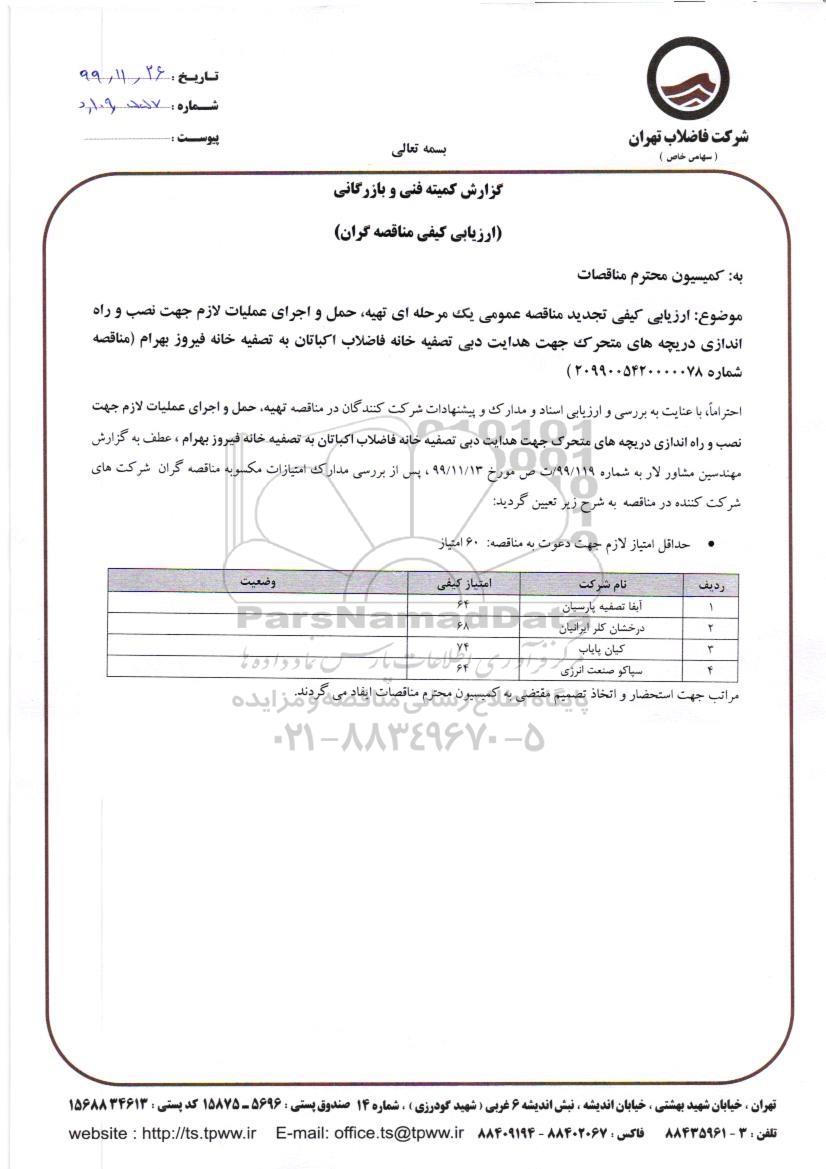 شرکت فاضلاب تهران
( سهامی خاص )
تاریخ : ۹۹,۱۱,۲۶
شماره :
پیوست :
بسمه تعالی
گزارش کمیته فنی و بازرگانی
(ارزیابی کیفی مناقصه گران)
به: کمیسیون محترم مناقصات
موضوع: ارزیابی کیفی تجدید مناقصه عمومی یک مرحله ای تهیه، حمل و اجرای عملیات لازم جهت نصب و راه
اندازی دریچه های متحرک جهت هدایت دبی تصفیه خانه فاضلاب اکباتان به تصفیه خانه فیروز بهرام (مناقصه
شماره ۲۰۹۹۰۰۵۴۲۰۰۰۰۰۷۸ )
احتراماً، با عنایت به بررسی و ارزیابی اسناد و مدارک و پیشنهادات شرکت کنندگان در مناقصه تهیه، حمل و اجرای عملیات لازم جهت
نصب و راه اندازی دریچه های متحرک جهت هدایت دبی تصفیه خانه فاضلاب اکباتان به تصفیه خانه فیروز بهرام ، عطف به گزارش
مهندسین مشاور لار به شماره ۹۹/۱۱۹/ت ص مورخ ۹۹/۱۱/۱۳ ، پس از بررسی مدارک امتیازات مکسوبه مناقصه گران شرکت های
شرکت کننده در مناقصه به شرح زیر تعیین گردید:
• حداقل امتیاز لازم جهت دعوت به مناقصه: ۶۰ امتیاز
ردیف نام شرکت امتیاز کیفی وضعیت
۱ آبفا تصفیه پارسیان ۶۴
۲ درخشان کلر ایرانیان ۶۸
۳ کیان پایاب ۷۴
۴ سپاکو صنعت انرژی ۶۴
مراتب جهت استحضار و اتخاذ تصمیم مقتضی به کمیسیون محترم مناقصات ایفاد می گردند.
ParsNamadData
مرکز فرآوری اطلاعات پارس نماد داده ها
پایگاه اطلاع رسانی مناقصه و مزایده
۰۲۱-۸۸۳۴۹۶۷۰-۵
تهران ، خیابان شهید بهشتی ، خیابان اندیشه ، نبش اندیشه ۶ غربی ( شهید گودرزی ) ، شماره ۱۴ صندوق پستی : ۵۶۹۶ ـ ۱۵۸۷۵ کد پستی : ۱۵۶۸۸۳۴۶۱۳
تلفن : ۳ - ۸۸۴۳۵۹۶۱ فاکس : ۸۸۴۰۲۰۶۷ - ۸۸۴۰۹۱۹۴ E-mail: office.ts@tpww.ir website : http://ts.tpww.ir